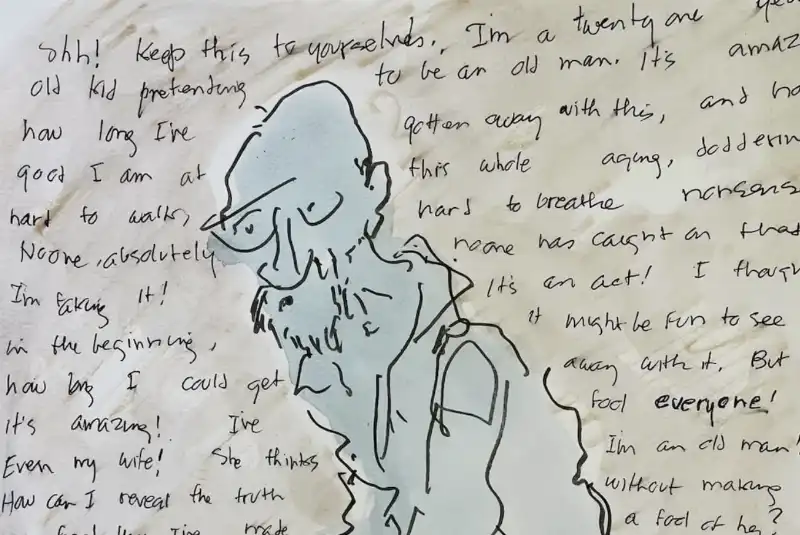 Shh! Keep this to yourselves.. I'm a twenty one
old kid pretending to be an old man. It's
how long I've gotten away with this, and
good I am at this whole aging,
hard to walk, hard to breathe
No one, absolutely no one has caught on that
I'm faking it! It's an act! I
in the beginning, it might be fun to see
how long I could get away with it. But
it's amazing! I've fool everyone!
Even my wife! She thinks I'm an old man!
How can I reveal the truth without making
I've made a fool of her?